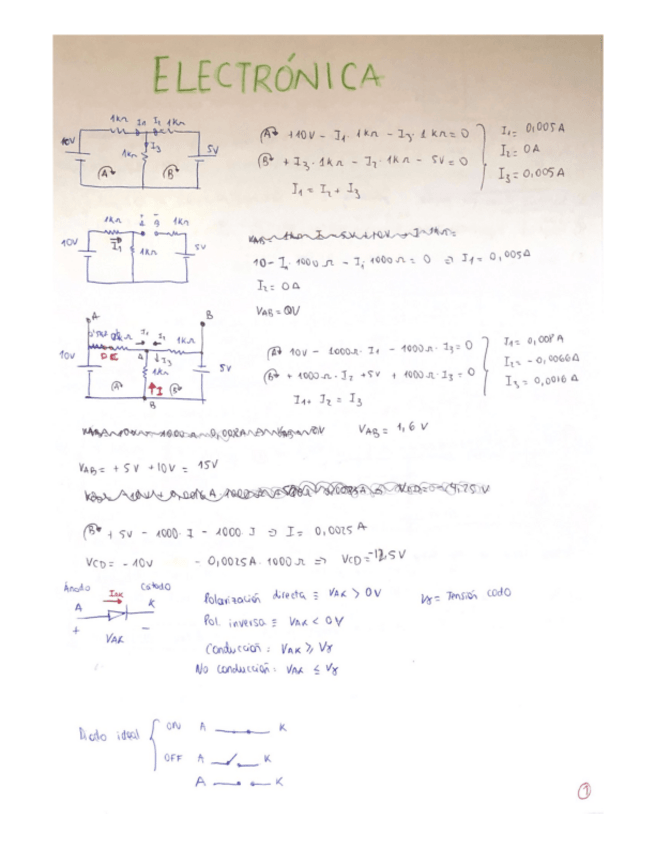 ELECTRÓNICA
1kΩ I1 I2 1kΩ
10V 1kΩ I3 5V
A B
A +10V - I1 · 1kΩ - I3 · 1kΩ = 0
B + I3 · 1kΩ - I2 · 1kΩ - 5V = 0
I1 = I2 + I3
I1 = 0,005A
I2 = 0A
I3 = 0,005A
1kΩ A B 1kΩ
10V I1 1kΩ 5V
10 - I1 · 1000Ω - I1 1000Ω = 0 ⇒ I1 = 0,005A
I2 = 0A
VAB = 0V
A B
I1 I2 1kΩ
10V DE A I3 5V
1kΩ
A I B
B
A 10V - 1000Ω · I1 - 1000Ω · I3 = 0
B + 1000Ω · I2 + 5V + 1000Ω · I3 = 0
I1 + I2 = I3
I1 = 0,008A
I2 = -0,0066A
I3 = 0,0016A
VAB = 1,6V
VAB = +5V +10V = 15V
B + 5V - 1000 · I - 1000 I ⇒ I = 0,0025A
VCD = -10V - 0,0025A · 1000Ω ⇒ VCD = -12,5V
Ánodo Cátodo
A IAK K
+ -
VAK
Polarización directa ≡ VAK > 0V
Vγ = Tensión codo
Pol. inversa ≡ VAK < 0V
Conducción: VAK ≥ Vγ
No conducción: VAK ≤ Vγ
Diodo ideal
ON A K
OFF A K
A K
1